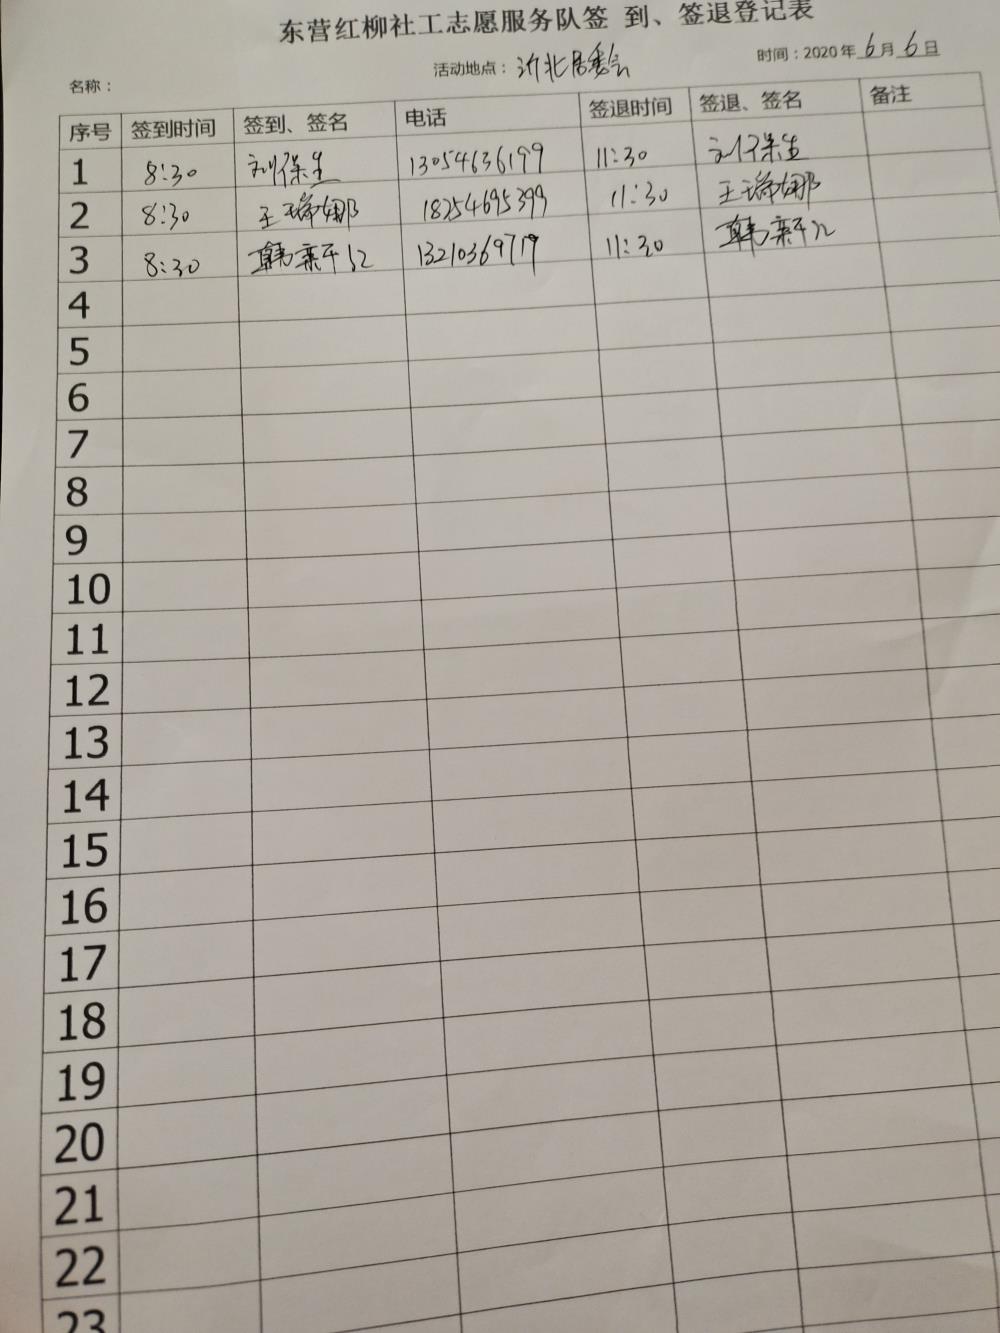 东营红柳社工志愿服务队签 到、签退登记表
名称： 活动地点：沂北居委会 时间：2020年6月6日
序号 签到时间 签到、签名 电话 签退时间 签退、签名 备注
1 8:30 刘保生 13054636199 11:30 刘保生
2 8:30 王瑞娜 18254695399 11:30 王瑞娜
3 8:30 韩 13210369719 11:30 韩
4
5
6
7
8
9
10
11
12
13
14
15
16
17
18
19
20
21
22
23